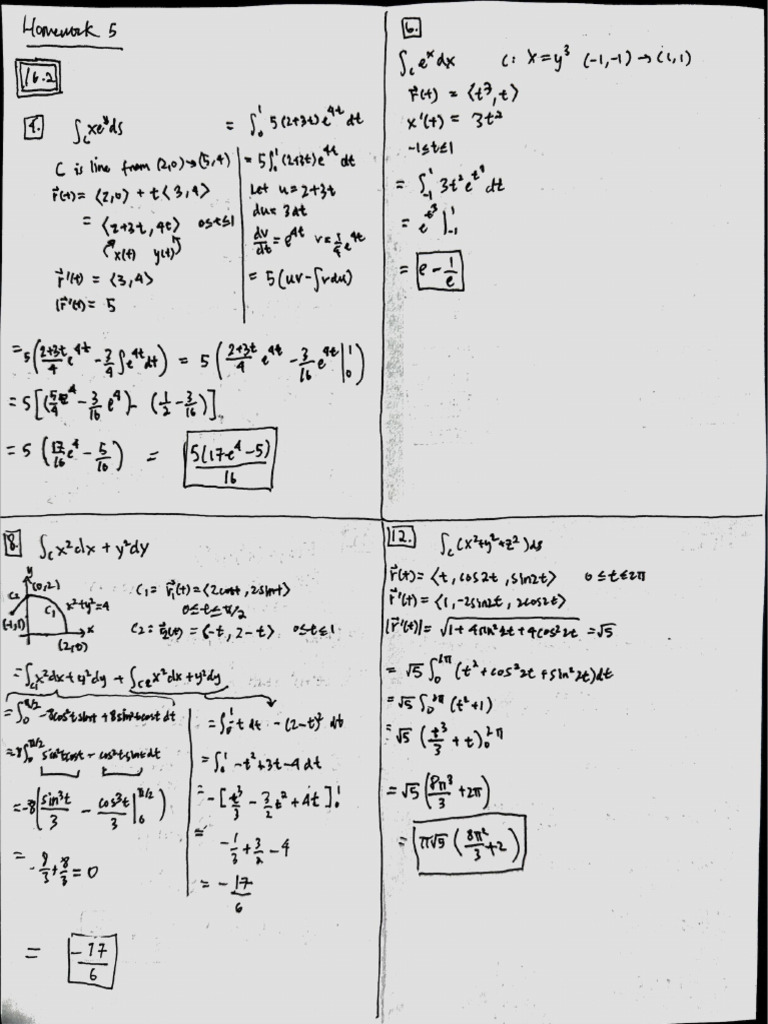 Homework 5
16.2
4. ∫_C xe^y ds
C is line from (2,0)→(5,4)
r⃗(t) = ⟨2,0⟩ + t⟨3,4⟩
= ⟨2+3t, 4t⟩ 0≤t≤1
x(t) y(t)
r⃗'(t) = ⟨3,4⟩
|r⃗'(t)| = 5
= ∫_0^1 5(2+3t)e^{4t} dt
= 5∫_0^1 (2+3t)e^{4t} dt
Let u = 2+3t
du = 3dt
dv/dt = e^{4t} v = 1/4 e^{4t}
= 5(uv - ∫vdu)
= 5((2+3t)/4 e^{4t} - 3/4 ∫e^{4t} dt) = 5((2+3t)/4 e^{4t} - 3/16 e^{4t} |_0^1)
= 5[(5/4 e^4 - 3/16 e^4) - (1/2 - 3/16)]
= 5(17/16 e^4 - 5/16) = 5(17e^4 - 5)/16
6.
∫_C e^x dx C: x = y^3 (-1,-1)→(1,1)
r⃗(t) = ⟨t^3, t⟩
x'(t) = 3t^2
-1≤t≤1
= ∫_{-1}^1 3t^2 e^{t^3} dt
= e^{t^3} |_{-1}^1
= e - 1/e
8. ∫_C x^2 dx + y^2 dy
y
(0,2)
C2
C1
x^2+y^2=4
(-1,1)
x
(2,0)
C1 = r⃗_1(t) = ⟨2cost, 2sint⟩
0≤t≤π/2
C2 = r⃗_2(t) = ⟨-t, 2-t⟩ 0≤t≤1
= ∫_{C1} x^2 dx + y^2 dy + ∫_{C2} x^2 dx + y^2 dy
= ∫_0^{π/2} -8cos^2t sint + 8sin^2t cost dt
= 8∫_0^{π/2} sin^2t cost - cos^2t sint dt
= -8(sin^3t/3 - cos^3t/3 |_0^{π/2})
= -8/3 + 8/3 = 0
= ∫_0^1 -t dt - (2-t)^2 dt
= ∫_0^1 -t^2+3t-4 dt
= -[t^3/3 - 3/2 t^2 + 4t]_0^1
= -1/3 + 3/2 - 4
= -17/6
= -17/6
12. ∫_C (x^2+y^2+z^2) ds
r⃗(t) = ⟨t, cos2t, sin2t⟩ 0≤t≤2π
r⃗'(t) = ⟨1, -2sin2t, 2cos2t⟩
|r⃗'(t)| = √(1+4sin^2 2t+4cos^2 2t) = √5
= √5 ∫_0^{2π} (t^2+cos^2 2t+sin^2 2t)dt
= √5 ∫_0^{2π} (t^2+1)
= √5 (t^3/3 + t)_0^{2π}
= √5 (8π^3/3 + 2π)
= π√5 (8π^2/3 + 2)